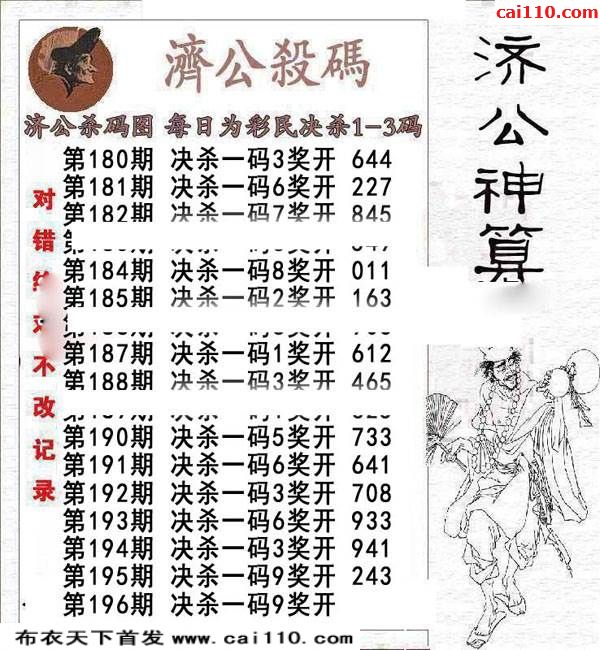 cai110.com
濟公殺碼
济公杀码图 每日为彩民决杀1-3码
第180期 决杀一码3奖开 644
第181期 决杀一码6奖开 227
第182期 决杀一码7奖开 845
第184期 决杀一码8奖开 011
第185期 决杀一码2奖开 163
第187期 决杀一码1奖开 612
第188期 决杀一码3奖开 465
第190期 决杀一码5奖开 733
第191期 决杀一码6奖开 641
第192期 决杀一码3奖开 708
第193期 决杀一码6奖开 933
第194期 决杀一码3奖开 941
第195期 决杀一码9奖开 243
第196期 决杀一码9奖开
对错
不改记录
济公神算
布衣天下首发 www.cai110.com